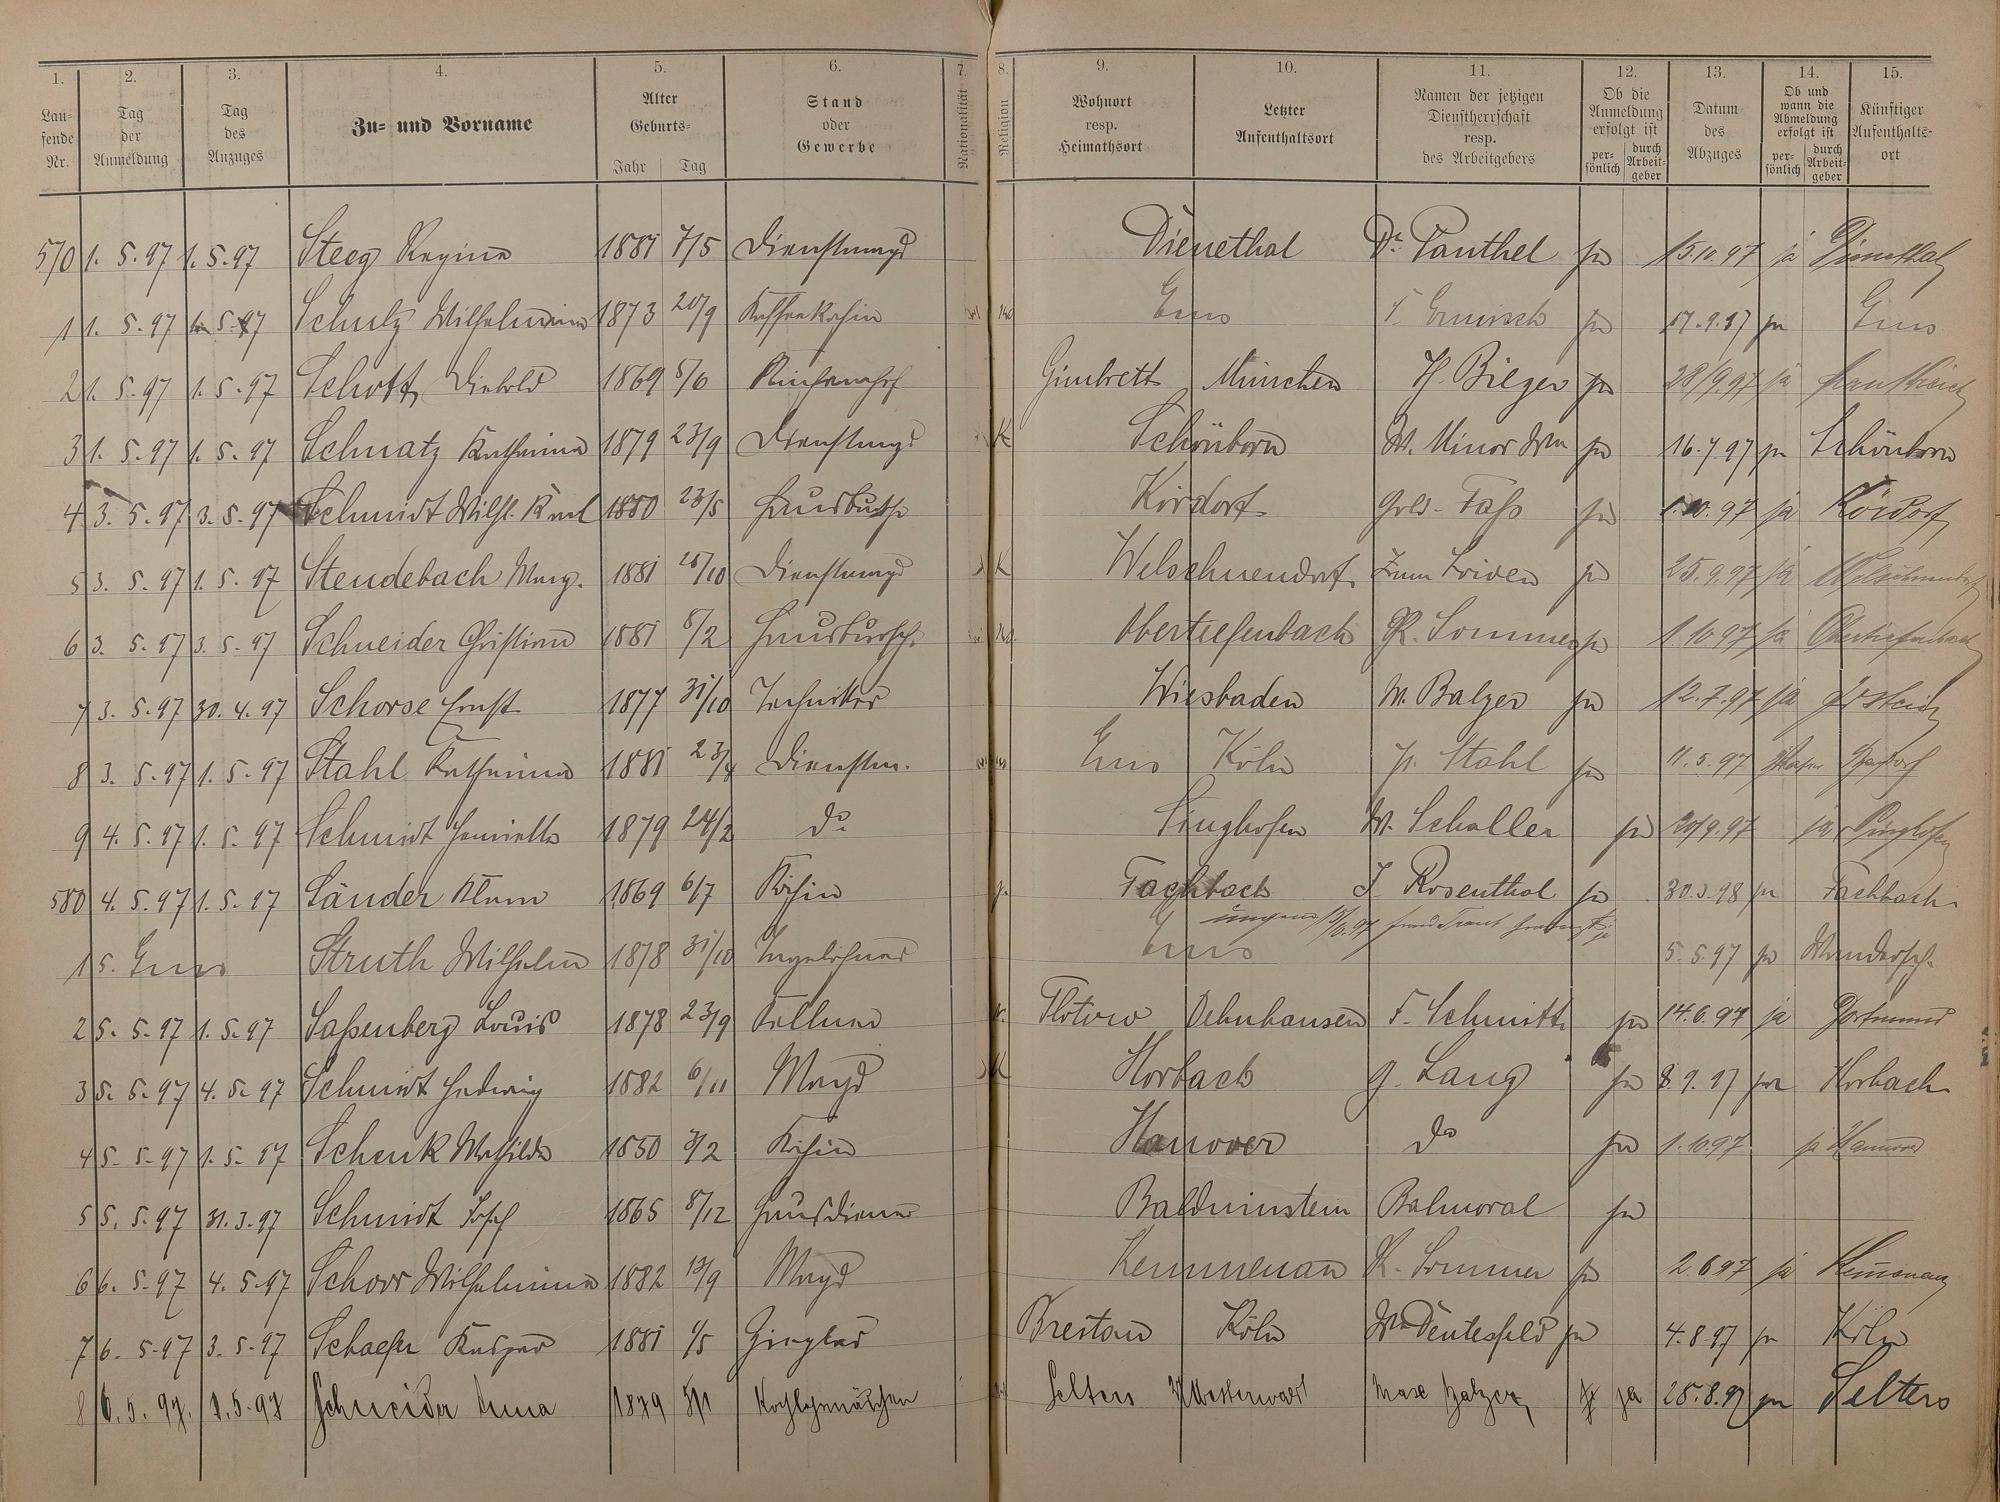 1. 2. 3. 4. 5. 6. 7. 8. 9. 10. 11. 12. 13. 14. 15.
Laufende Nr. | Tag der Anmeldung | Tag des Anzuges | Zu- und Vorname | Alter Geburts= Jahr Tag | Stand oder Gewerbe | Nationalität | Religion | Wohnort resp. Heimathsort | Letzter Aufenthaltsort | Namen der jetzigen Dienstherrschaft resp. des Arbeitgebers | Ob die Anmeldung erfolgt ist persönlich durch Arbeitgeber | Datum des Abzuges | Ob und wann die Abmeldung erfolgt ist persönlich durch Arbeitgeber | Künftiger Aufenthaltsort
570 1. 5. 97 1. 5. 97 Steeg Regina 1881 7/5 Dienstmagd Dienethal Dr. Panthel ja 15.10.97 ja Dienethal
1 1. 5. 97 Schulz Wilhelmine 1873 20/9 Kaffeeköchin Ems ja 17.9.97 ja Ems
2 1. 5. 97 1. 5. 97 Schott Diebold 1869 5/6 Küchenchef Gimbrett München H. Bieger ja 28/9.97 ja Frankreich
3 1. 5. 97 1. 5. 97 Schnatz Katharina 1879 23/9 Dienstmagd K Schönborn W. Minor Wwe ja 16.7.97 ja Schönborn
4 3. 5. 97 3. 5. 97 Schmidt Wilh. Karl 1880 23/5 Hausbursche Kördorf Gold. Fass ja 1.10.97 ja Kördorf
5 3. 5. 97 1. 5. 97 Stendebach Marg. 1881 /10 Dienstmagd K Welschneudorf Zum Löwen ja 25.9.97 ja Welschneudorf
6 3. 5. 97 3. 5. 97 Schneider Christian 1881 8/2 Hausbursche Obertiefenbach R. Sommer ja 1.10.97 ja Obertiefenbach
7 3. 5. 97 30. 4. 97 Schorse Ernst 1877 31/10 Techniker Wiesbaden M. Balzer ja 12.7.97 ja Idstein
8 3. 5. 97 1. 5. 97 Stahl Katharina 1881 23/4 Dienstm. Ems Köln Stahl ja 11.5.97
9 4. 5. 97 1. 5. 97 Schmidt Henriette 1879 24/2 do Singhofen W. Schaller ja 20/9.97 ja Singhofen
580 4. 5. 97 1. 5. 97 Sänder Anna 1869 6/7 Köchin Fachbach J. Rosenthal ja 30.3.98 ja Fachbach
1 5. Ems Struth Wilhelm 1878 31/10 Ems 5. 5. 97 ja Wandersch.
2 5. 5. 97 1. 5. 97 Saßenberg Louis 1878 23/9 Kellner Flotow Oehnhausen F. Schmitt ja 14.6.97 ja Dortmund
3 5. 5. 97 4. 5. 97 Schmidt Hedwig 1882 6/11 Magd K Horbach G. Lang ja 8.9.97 ja Horbach
4 5. 5. 97 1. 5. 97 Schenk Mathilde 1850 3/2 Köchin Hanover do ja 1.10.97 ja Hannover
5 5. 5. 97 31. 3. 97 Schmidt Josef 1865 8/12 Hausdiener Balduinstein Balmoral ja
6 6. 5. 97 4. 5. 97 Schorr Wilhelmina 1882 13/9 Magd Kemmenau K. Sommer ja 2.6.97 ja Kemmenau
7 6. 5. 97 3. 5. 97 Schaefer Kaspar 1881 1/5 Ziegler Köln ja 4.8.97 ja Köln
8 6. 5. 97. 1. 5. 97 Schneider Anna 1879 Kochlehrmädchen Selters Westerwald Max Balzer ja 25.8.97 ja Selters